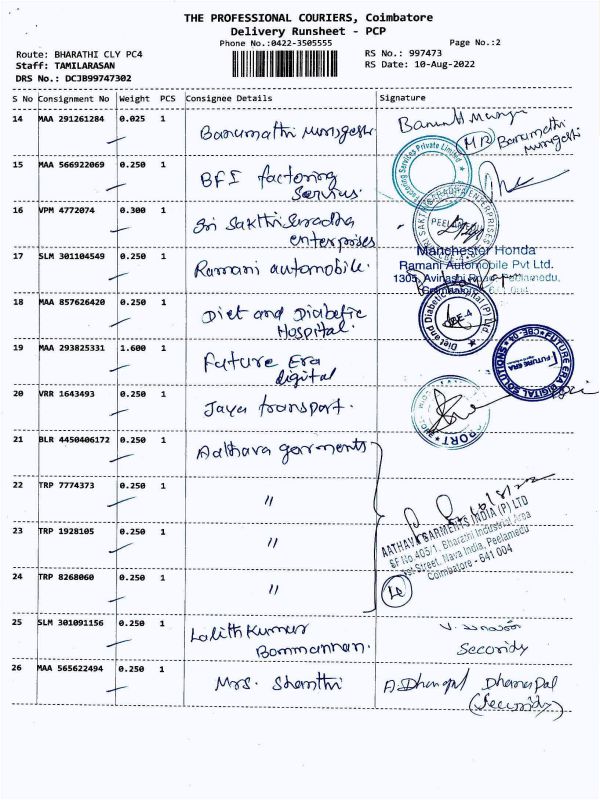 THE PROFESSIONAL COURIERS, Coimbatore
Delivery Runsheet - PCP
Phone No.:0422-3505555
Page No.:2
Route: BHARATHI CLY PC4
RS No.: 997473
Staff: TAMILARASAN
RS Date: 10-Aug-2022
DRS No.: DCJB99747302
S No Consignment No Weight PCS Consignee Details Signature
14 MAA 291261284 0.025 1 Banumathi murugesh
MR Banumathi
murugesh
15 MAA 566922069 0.250 1 BFI factoring
Servius.
Factoring Services Private Limited
16 VPM 4772074 0.300 1 Sri Sakthi Saradha
enterprises
SRI SAKTHI SARADHA ENTERPRISES
PEELAMEDU
17 SLM 301104549 0.250 1 Ramani automobile.
Manchester Honda
Ramani Automobile Pvt Ltd.
1305, Avinashi Road, Peelamedu,
18 MAA 857626420 0.250 1 Diet and Diabetic
Hospital.
Diet and Diabetic Hospital (P) Ltd
CBE-4
19 MAA 293825331 1.600 1 Future Era
digital
FUTURE ERA DIGITAL SOLUTIONS
CBE-04
FUTURE ERA
20 VRR 1643493 0.250 1 Jaya transport.
21 BLR 4450406172 0.250 1 Aathava garments
22 TRP 7774373 0.250 1 "
23 TRP 1928105 0.250 1 "
AATHAVA GARMENTS INDIA (P) LTD
SF No 405/1, Bharathi Industrial Area
1st Street, Nava India, Peelamedu
Coimbatore - 641 004
24 TRP 8268060 0.250 1 "
25 SLM 301091156 0.250 1 Lalith Kumar
Bommannan.
Secoridy
26 MAA 565622494 0.250 1 Mrs. Shanthi
A. Dhanapal Dhanapal
(Securidy)